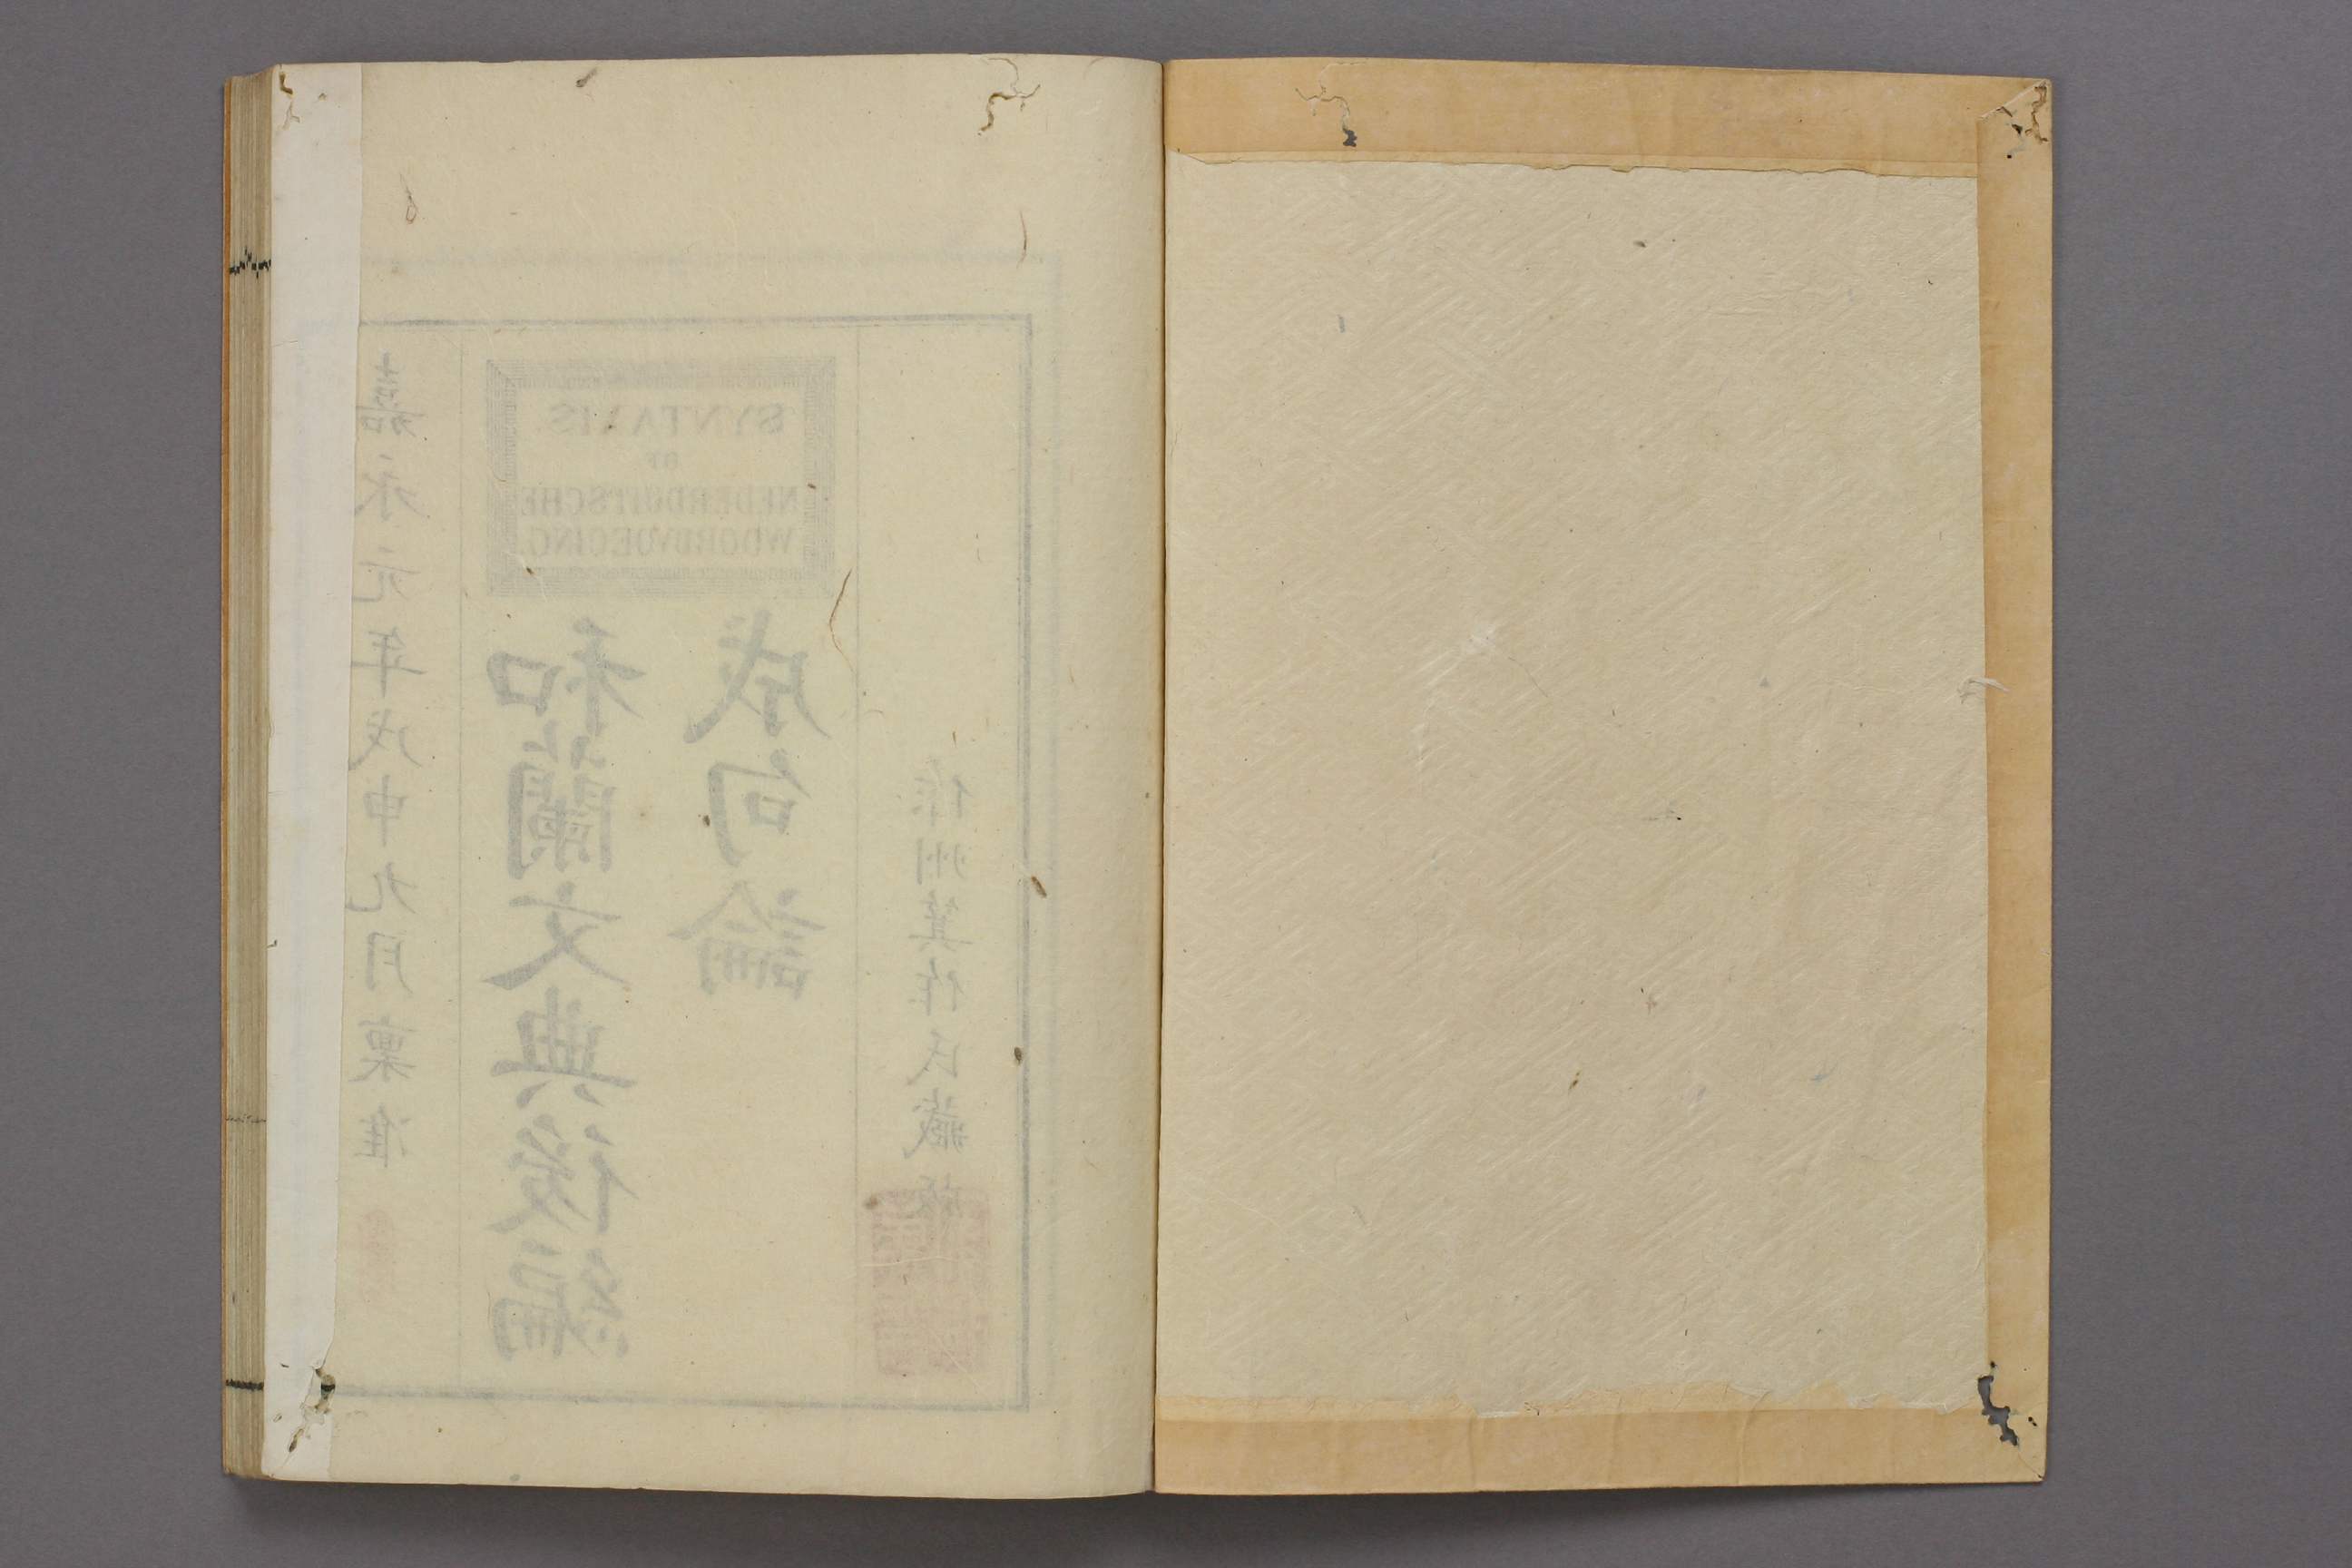 嘉永元年戊申九月稟准
SYNTAXIS
OF
NEDERDUITSCHE
WOORDVOEGING.
和蘭文典後編
成句論
作州箕作氏藏